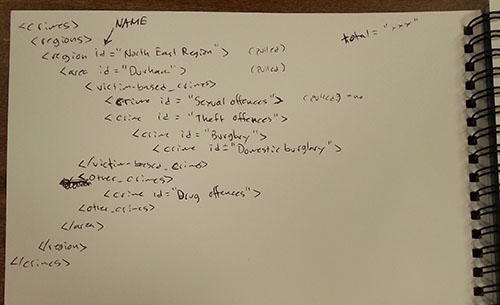 <crimes>
NAME
<regions>
total = "xxx"
<region id = "North East Region"> (pulled)
<area id = "Durham"> (pulled)
<victim-based_crimes>
<crime id = "Sexual offences"> (pulled) = no
<crime id = "Theft offences">
<crime id = "Burglary">
<crime id = "Domestic burglary">
</victim-based_crimes>
<other_crimes>
<crime id = "Drug offences">
<other_crimes>
</area>
</region>
</crimes>